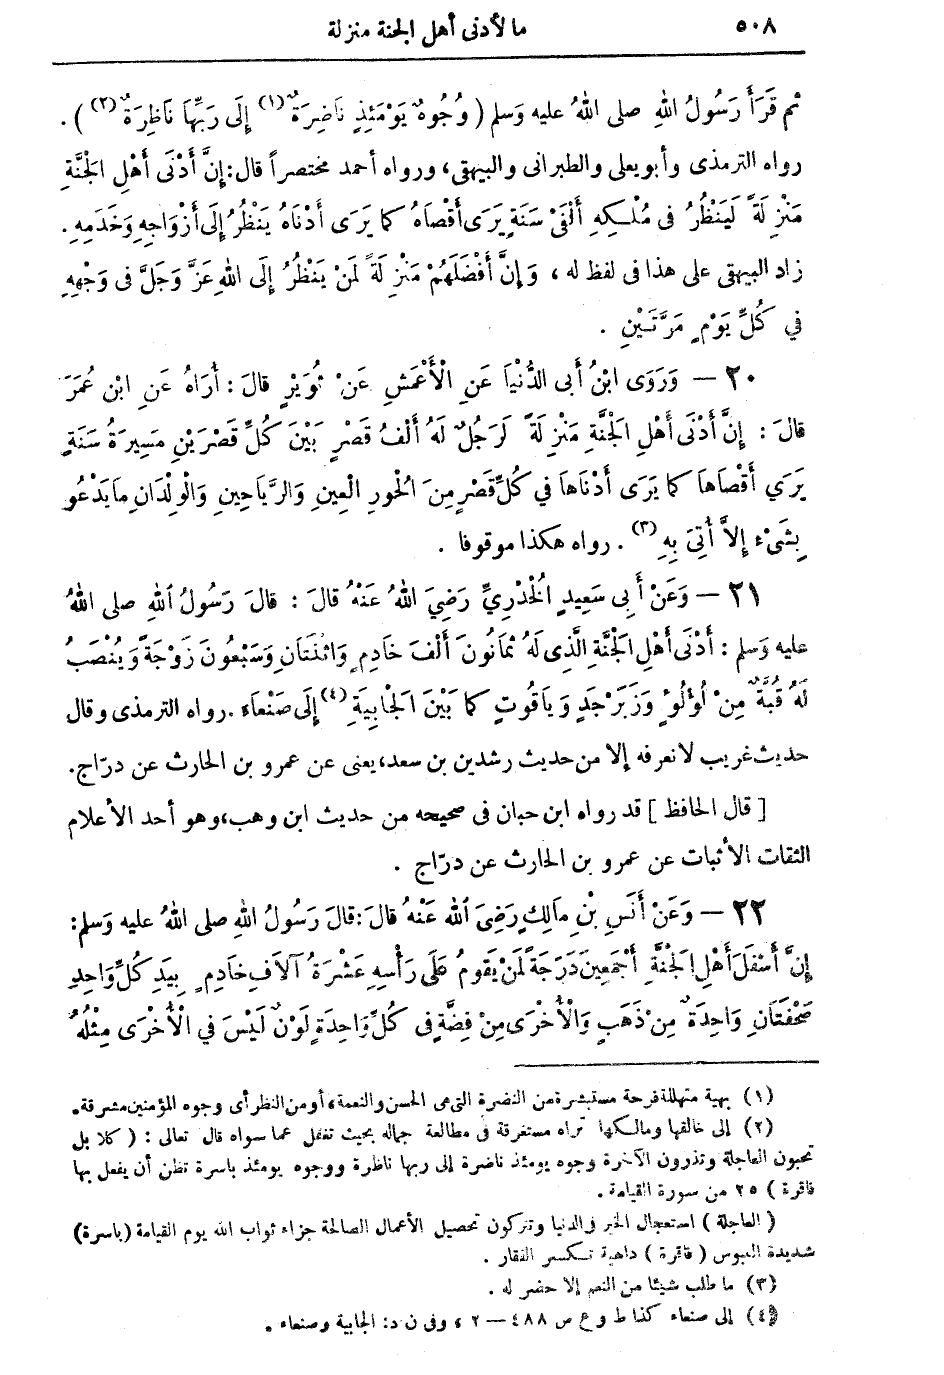 ٥٠٨ ما لأدنى أهل الجنة منزلة
ثم قَرَأَ رَسُولُ اللهِ صلى اللهُ عليه وَسلم ( وُجُوهٌ يَوْمَئِذٍ نَاضِرَةٌ (١) إِلَى رَبِّهَا نَاظِرَةٌ (٢) ) .
رواه الترمذى وأبو يعلى والطبرانى والبيهقى ، ورواه أحمد مختصراً قال : إِنَّ أَدْنَى أَهْلِ الْجَنَّةِ
مَنْزِلَةً لَيَنْظُرُ فى مُلْكِهِ أَلْفَىْ سَنَةٍ يَرَى أَقْصَاهُ كما يَرَى أَدْنَاهُ يَنْظُرُ إِلَى أَزْوَاجِهِ وَخَدَمِهِ .
زاد البيهقى على هذا فى لفظ له ، وَإِنَّ أَفْضَلَهُمْ مَنْزِلَةً لَمَنْ يَنْظُرُ إِلَى اللهِ عَزَّ وَجَلَّ فى وَجْهِهِ
فِي كُلِّ يَوْمٍ مَرَّتَيْنِ .
٢٠ — وَرَوَى ابْنُ أَبى الدُّنْيَا عَنِ الْأَعْمَشِ عَنْ ثُوَيْرٍ قالَ : أُرَاهُ عَنِ ابْنِ عُمَرَ
قالَ : إِنَّ أَدْنَى أَهْلِ الْجَنَّةِ مَنْزِلَةً لَرَجُلٌ لَهُ أَلْفُ قَصْرٍ بَيْنَ كُلِّ قَصْرَيْنِ مَسِيرَةُ سَنَةٍ
يَرَي أَقْصَاهَا كما يَرَى أَدْنَاهَا فِي كُلِّ قَصْرٍ مِنَ الْحُورِ الْعِينِ وَالرَّيَاحِينِ وَالْوِلْدَانِ مَا يَدْعُو
بِشَىْءٍ إِلاَّ أُتِىَ بِهِ (٣) . رواه هكذا موقوفا .
٢١ — وَعَنْ أَبِى سَعِيدٍ الْخُدْرِيِّ رَضِيَ اللهُ عَنْهُ قالَ : قالَ رَسُولُ اللهِ صلى اللهُ
عليه وَسلم : أَدْنَى أَهْلِ الْجَنَّةِ الَّذِى لَهُ ثَمَانُونَ أَلْفَ خَادِمٍ وَاثْنَتَانِ وَسَبْعُونَ زَوْجَةً وَيُنْصَبُ
لَهُ قُبَّةٌ مِنْ لُؤْلُؤٍ وَزَبَرْجَدٍ وَيَاقُوتٍ كما بَيْنَ الْجَابِيَةِ (٤) إِلَى صَنْعَاءَ . رواه الترمذى وقال
حديث غريب لا نعرفه إلا من حديث رشدين بن سعد ، يعنى عن عمرو بن الحارث عن درّاج .
[ قال الحافظ ] قد رواه ابن حبان فى صحيحه من حديث ابن وهب ، وهو أحد الأعلام
الثقات الأثبات عن عمرو بن الحارث عن درّاج .
٢٢ — وَعَنْ أَنَسِ بْنِ مالِكٍ رَضِىَ اللهُ عَنْهُ قالَ : قالَ رَسُولُ اللهِ صلى اللهُ عليه وَسلم :
إِنَّ أَسْفَلَ أَهْلِ الْجَنَّةِ أَجْمَعِينَ دَرَجَةً لَمَنْ يَقُومُ عَلَى رَأْسِهِ عَشْرَةُ آلاَفِ خَادِمٍ بِيَدِ كُلِّ وَاحِدٍ
صَحْفَتَانِ وَاحِدَةٌ مِنْ ذَهَبٍ وَالْأُخْرَى مِنْ فِضَّةٍ فى كُلِّ وَاحِدَةٍ لَوْنٌ لَيْسَ فِي الْأُخْرَى مِثْلُهُ
(١) بهية متهللة فرحة مستبشرة من النضرة التى هى الحسن والنعمة ، أو من النظر أى وجوه المؤمنين مشرقة .
(٢) إلى خالقها ومالكها تراه مستغرقة فى مطالعة جماله بحيث تغفل عما سواه قال تعالى : ( كلا بل
تحبون العاجلة وتذرون الآخرة وجوه يومئذ ناضرة إلى ربها ناظرة ووجوه يومئذ باسرة تظن أن يفعل بها
فاقرة ) ٢٥ من سورة القيامة .
( العاجلة ) استعجال الخير فى الدنيا وتتركون تحصيل الأعمال الصالحة جزاء ثواب الله يوم القيامة ( باسرة )
شديدة العبوس ( فاقرة ) داهية تكسر الفقار .
(٣) ما طلب شيئا من النعم إلا حضر له .
(٤) إلى صنعاء كذا ط و ع ص ٤٨٨ — ٢ ، وفى ن د : الجابية وصنعاء .